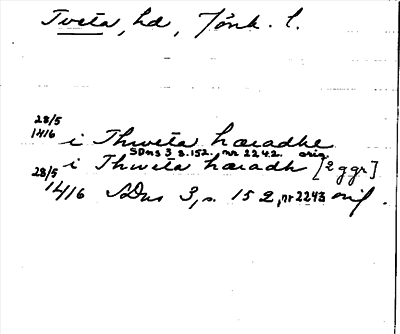 Tveta, hd, Jönk. l.
28/5
1416 i Thweta hæradhe
SDns 3 s. 152., nr 2242. orig
28/5 i Thweta hæradh [2 ggr]
1416 SDns 3, s. 152, nr 2243 orig.